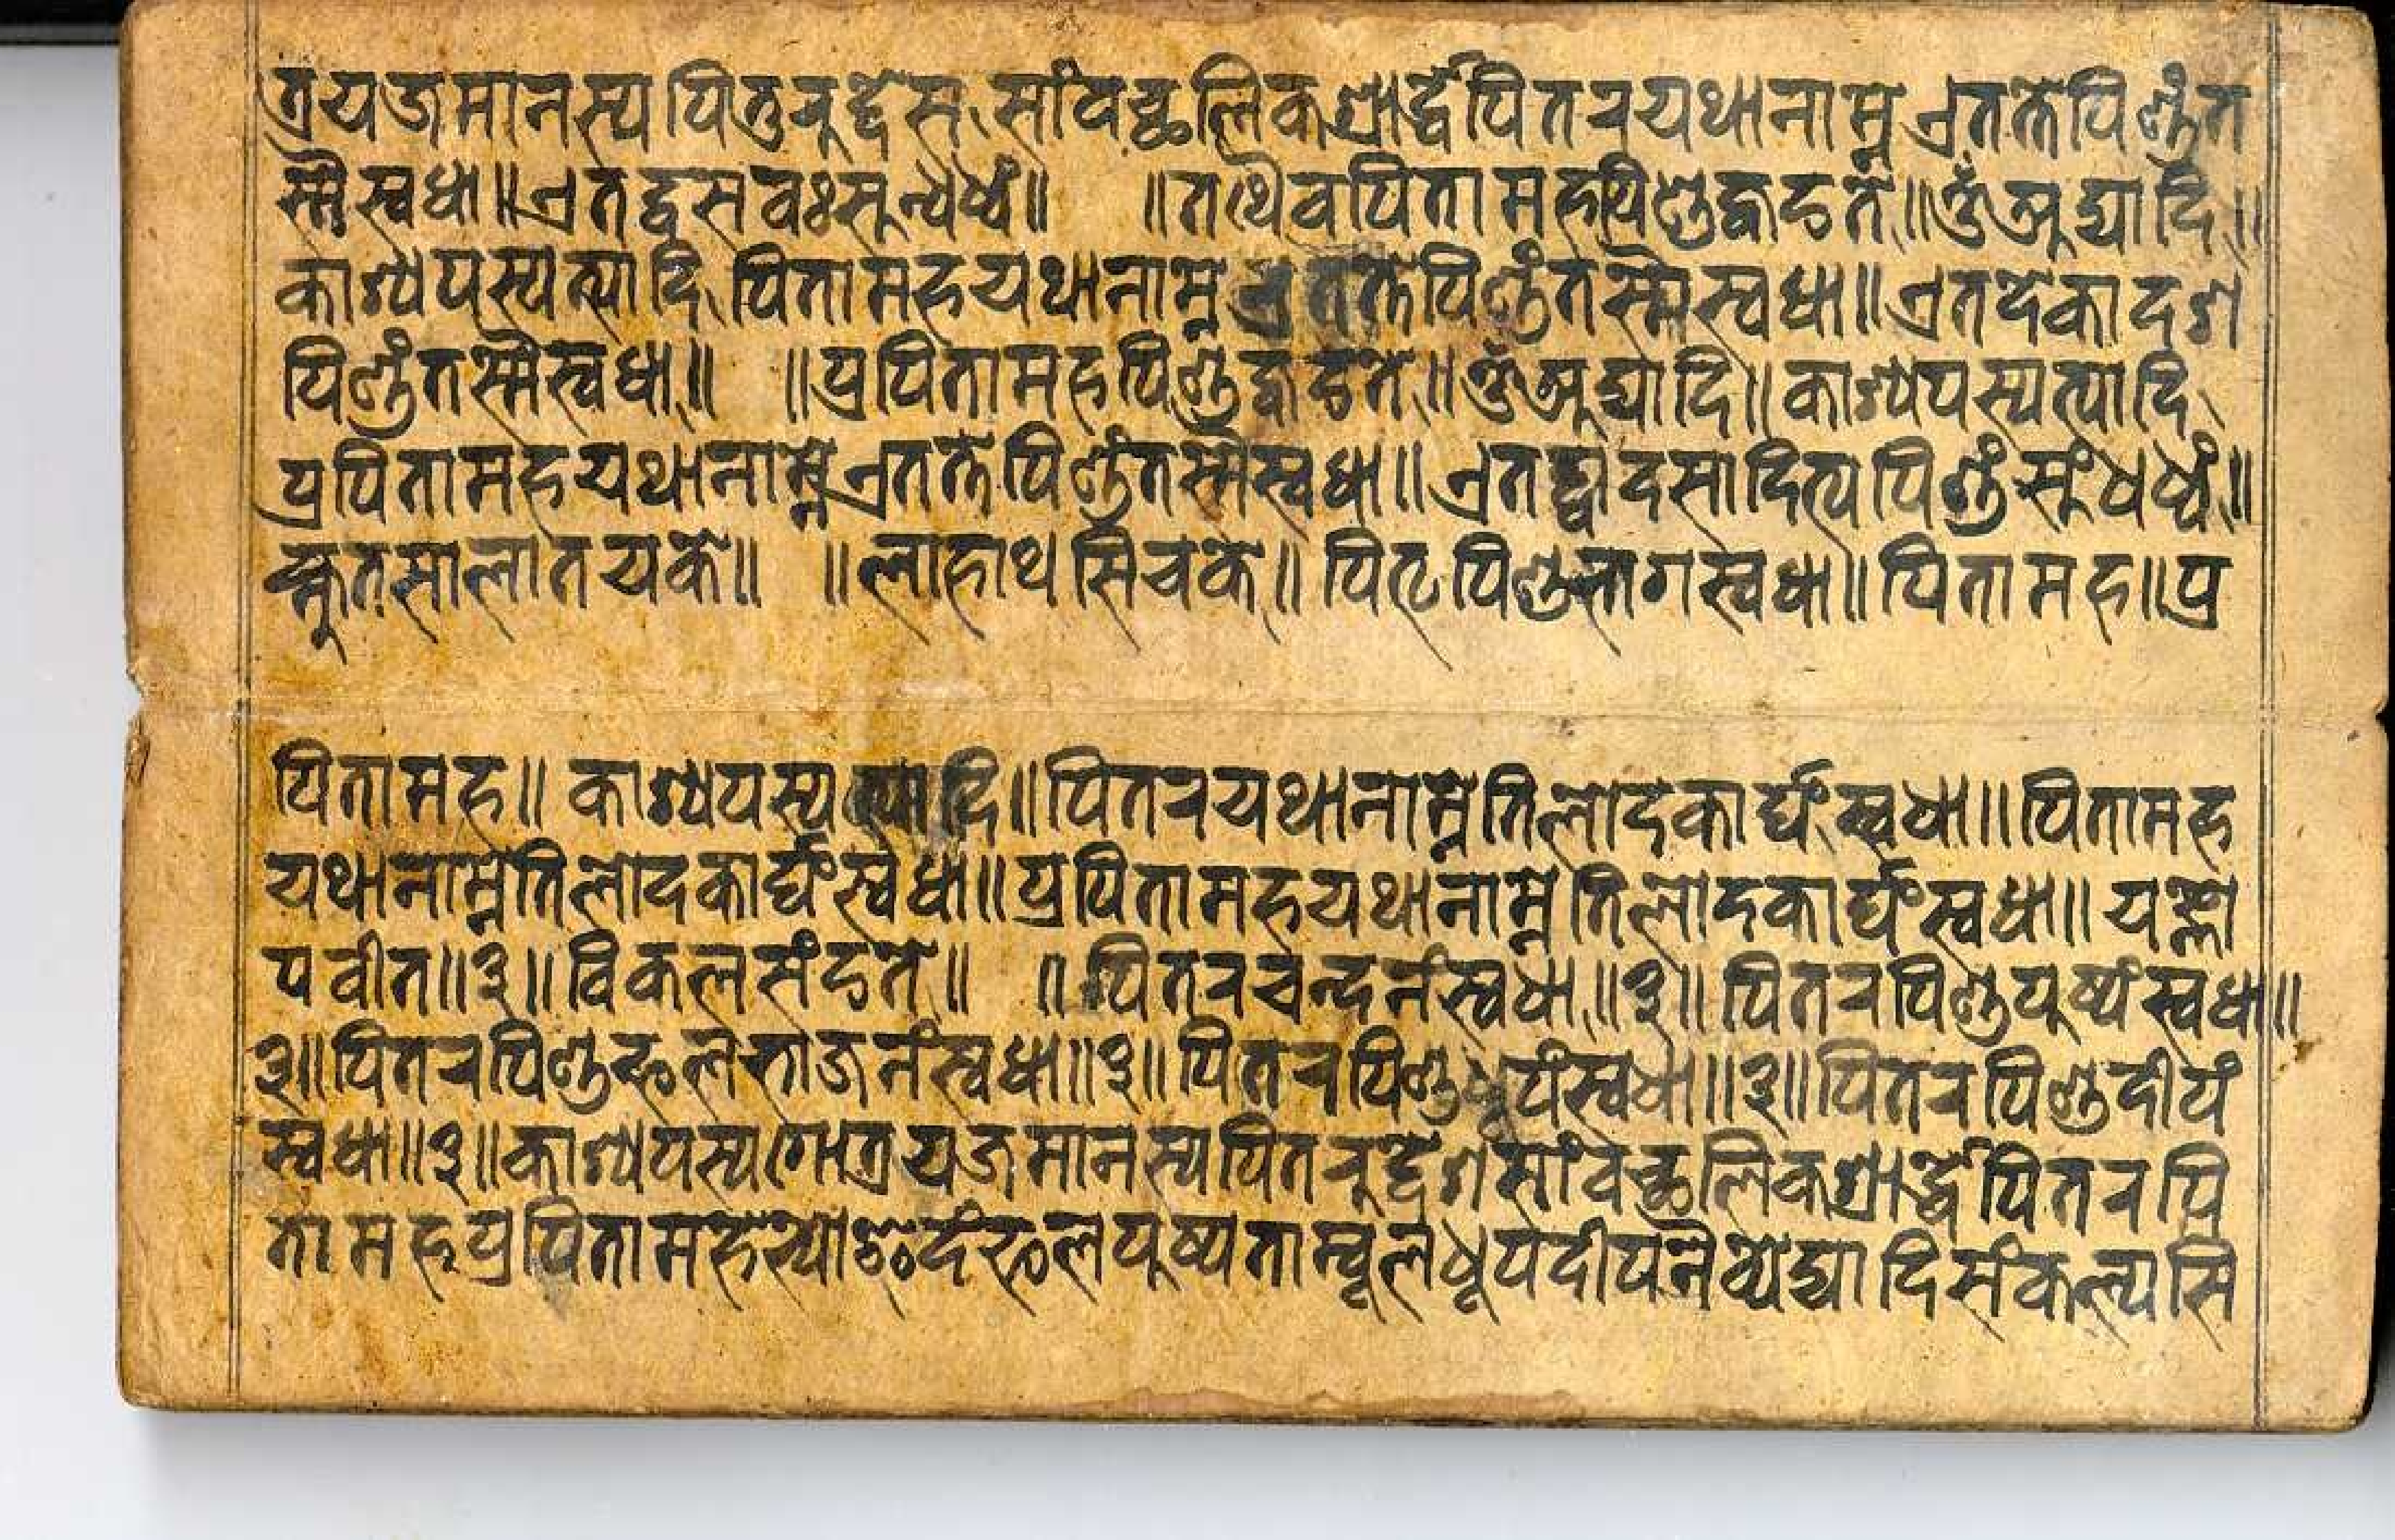 त्रयजमानस्य पितुरुद्देस, सांवच्छलिकश्रार्द्धे पितरयथानाम्न एतत्ते पिण्डंत
स्मै स्वधा ॥ एतद्वसवः सून्धध्वं ॥ ॥ तथैव पितामहपिण्डद्वछते ॥ ॐ अद्यादि ॥
काश्यपस्यत्यादि, पितामहयथानाम्न एतत्ते पिण्डं तस्मै स्वधा ॥ एतदेकादश
पिण्डं तस्मै स्वधा ॥ ॥ प्रपितामहपिण्डद्वछते ॥ ॐ अद्यादि ॥ काश्यपस्यत्यादि,
प्रपितामहयथानाम्ने एतत्ते पिण्डं तस्मै स्वधा ॥ एतद्द्वादसादित्य पिण्डं सूंधध्वं ॥
सालातयके ॥ ॥ लाहाथ सिचके ॥ पितृपिण्डभागस्वधा ॥ पितामह ॥ प्र
पितामह ॥ काश्यपस्यत्यादि ॥ पितरयथानाम्ने तिलोदकार्घ्यं स्वधा ॥ पितामह
यथानाम्ने तिलोदकार्घ्यं स्वधा ॥ प्रपितामहयथानाम्ने तिलोदकार्घ्यं स्वधा ॥ यज्ञो
पवीत ॥ ३ ॥ विकलसंछते ॥ ॥ पितरचन्दनं स्वधा ॥ ३ ॥ पितरपिण्डपुष्पं स्वधा ॥
३ ॥ पितरपिण्डफलभोजनं स्वधा ॥ ३ ॥ पितरपिण्डधूपं स्वधा ॥ ३ ॥ पितरपिण्डदीपं
स्वधा ॥ ३ ॥ काश्यपस्यगोत्रयजमानस्यपितरुद्देश सांवच्छलिकश्रार्द्धे पितरपि
तामहप्रपितामहेभ्यो इदं फलपुष्पताम्बूलधूपदीपनैव्यद्यादि संकल्पसि